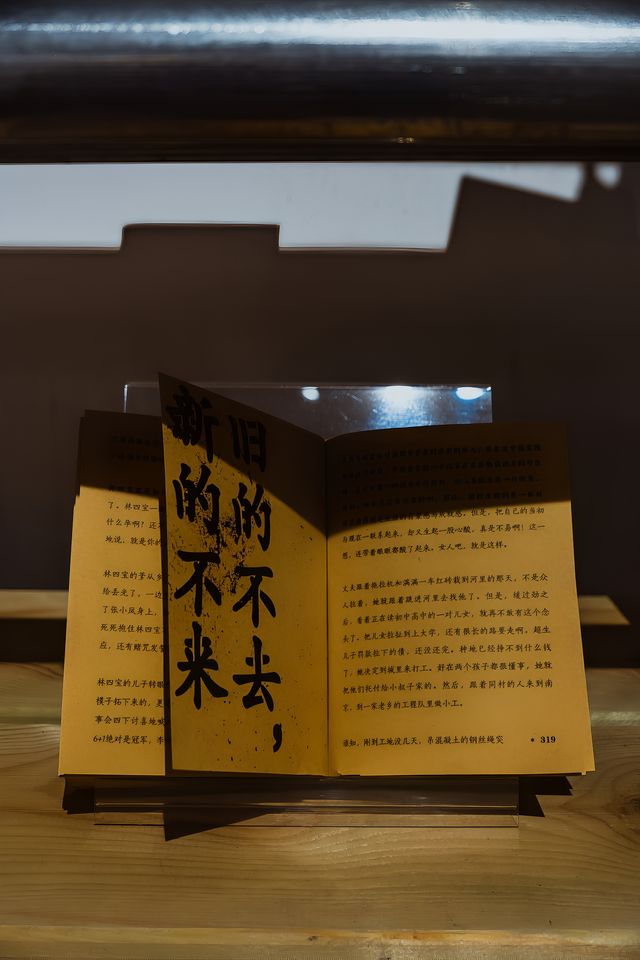 了。林四宝一
什么孕啊？还
地说，就是你的
林四宝的爹从乡
给丢光了，一边
了张小凤身上，
死死抱住林四宝
应，还有赌咒发誓
林四宝的儿子转眼
模子拓下来的，更
事会四下讨喜地喊
6+1绝对是冠军，李
旧的不去，
新的不来
但是，把自己的当初
与现在一联系起来，却又生起一股心酸，真是不易啊！这一
想，还带着眼眶都酸了起来。女人吧，就是这样。
丈夫跟着拖拉机和满满一车红砖载到河里的那天，不是众
人拉着，她就跟着跳进河里去找他了。但是，缓过劲之
后，看着正在读初中高中的一对儿女，就再不敢有这个念
头了。把儿女拉扯到上大学，还有很长的路要走啊。超生
儿子罚款拉下的债，还没还完。种地已经挣不到什么钱
了，她决定到城里来打工。好在两个孩子都很懂事，她就
把他们托付给小叔子家的。然后，跟着同村的人来到南
京，到一家老乡的工程队里做小工。
谁知，刚到工地没几天，吊混凝土的钢丝绳突
319